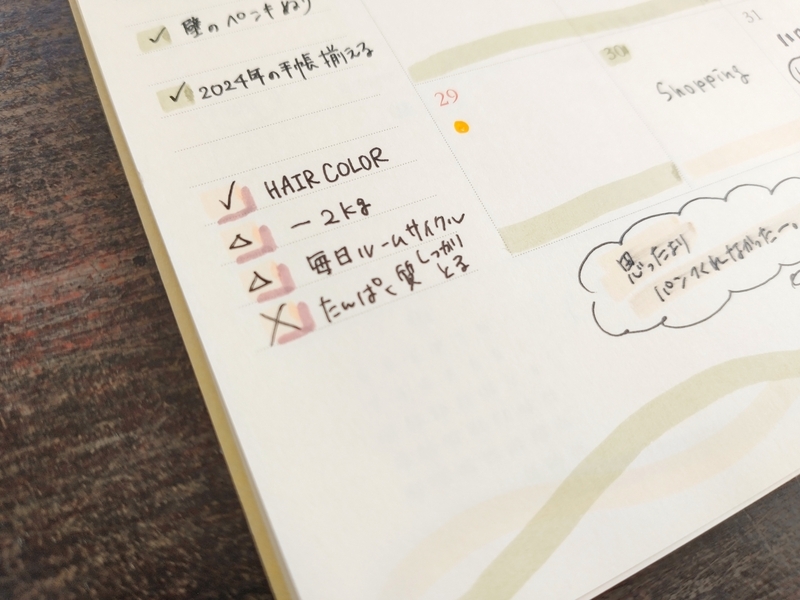 ✓ 壁のペンキぬり
✓ 2024年の手帳揃える
✓ HAIR COLOR
△ －2kg
△ 毎日ルームサイクル
× たんぱく質しっかり
とる
29
30
31
Shopping
思ったより
パンつくれなかったー。